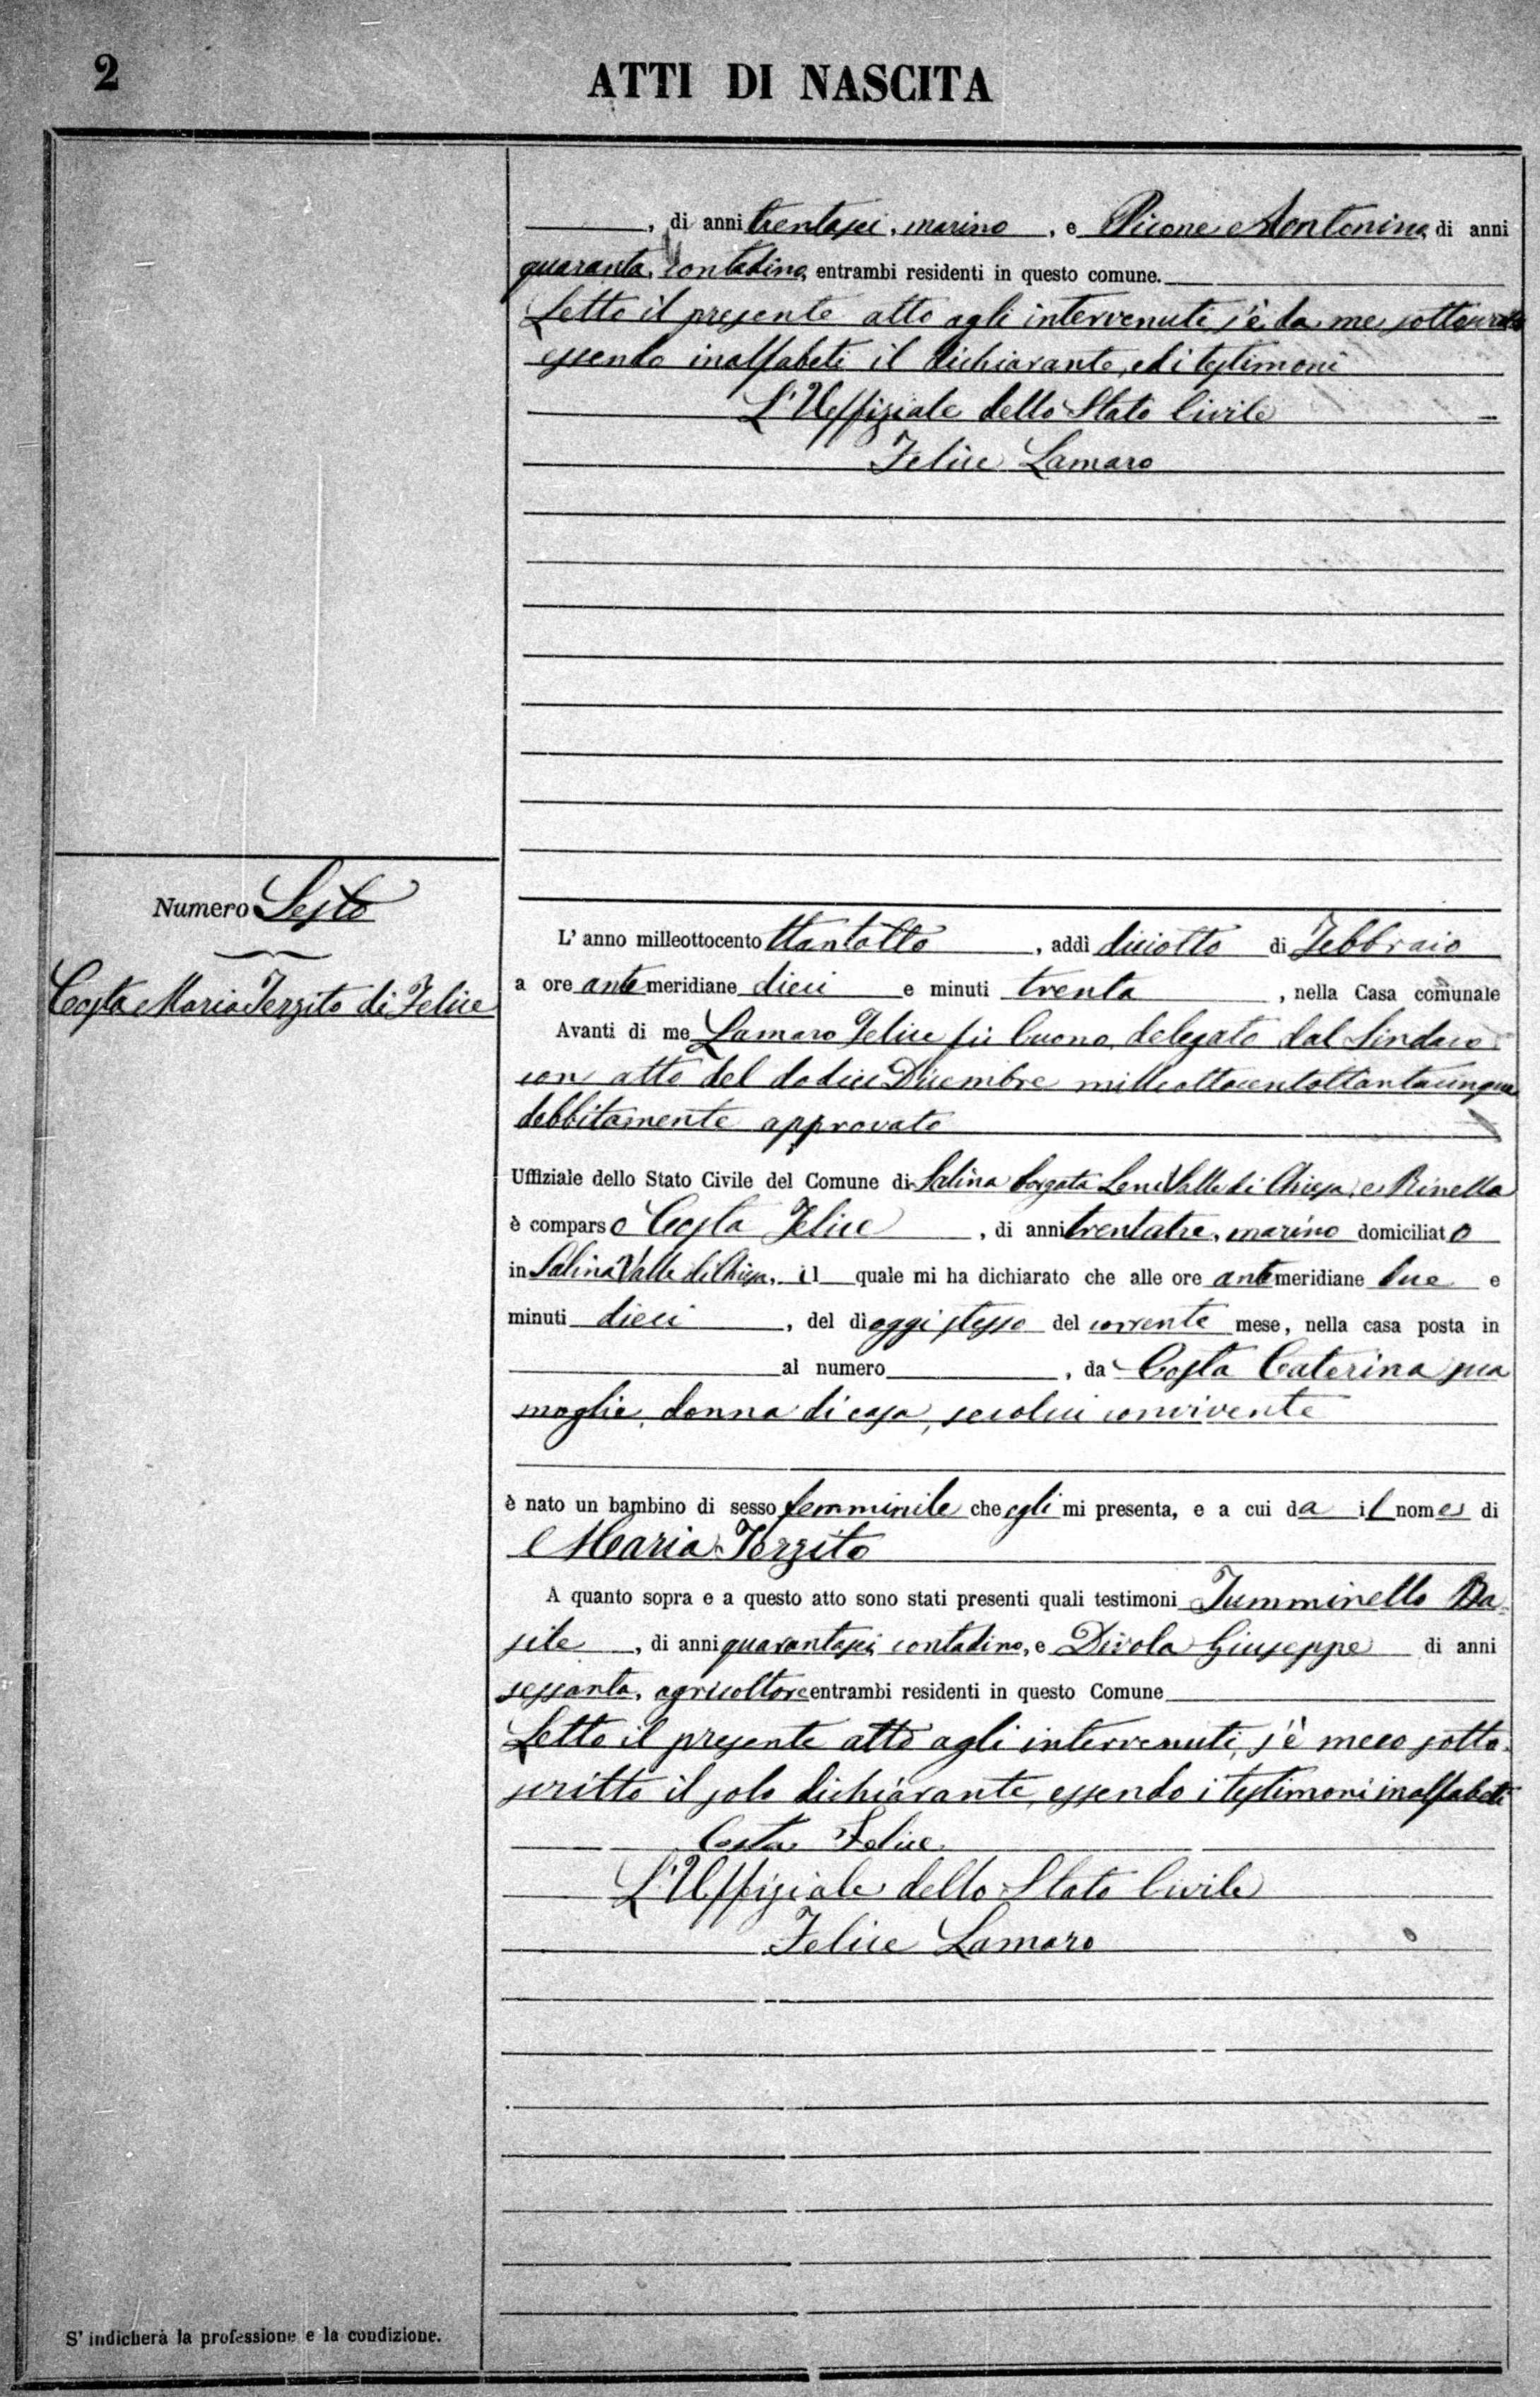 2
ATTI DI NASCITA
, di anni trentasei, marino, e Picone Antonino, di anni
quaranta, contadino, entrambi residenti in questo comune.
Letto il presente atto agli intervenuti s'è da me sottoscritto
essendo inalfabeti il dichiarante, ed i testimoni
L'Uffiziale dello Stato Civile
Felice Lamaro
Numero Sesto
Costa Maria Terzita di Felice
L' anno milleottocento ttantotto, addì diciotto di Febbraio
a ore antemeridiane dieci e minuti trenta, nella Casa comunale
Avanti di me Lamaro Felice fù buono, delegato dal Sindaco
con atto del dodici Dicembre milleottocentottantacinque
debbitamente approvato
Uffiziale dello Stato Civile del Comune di Salina borgata Leni Valle di Chiesa, e Rinella
è comparso Costa Felice, di anni trentatre, marino domiciliato
in Salina Valle di Chiesa, il quale mi ha dichiarato che alle ore antemeridiane due e
minuti dieci, del dì oggi stesso del corrente mese, nella casa posta in
al numero, da Costa Caterina sua
moglie, donna di casa, secolui convivente
è nato un bambino di sesso femminile che egli mi presenta, e a cui da il nomes di
Maria Terzita
A quanto sopra e a questo atto sono stati presenti quali testimoni Tumminello Ba-
sile, di anni quarantasei, contadino, e Divola Giuseppe di anni
sessanta, agricoltore entrambi residenti in questo Comune
Letto il presente atto agli intervenuti, s'è meco sotto-
scritto il solo dichiarante, essendo i testimoni inalfabeti
Costa Felice
L'Uffiziale dello Stato Civile
Felice Lamaro
S' indicherà la professione e la condizione.